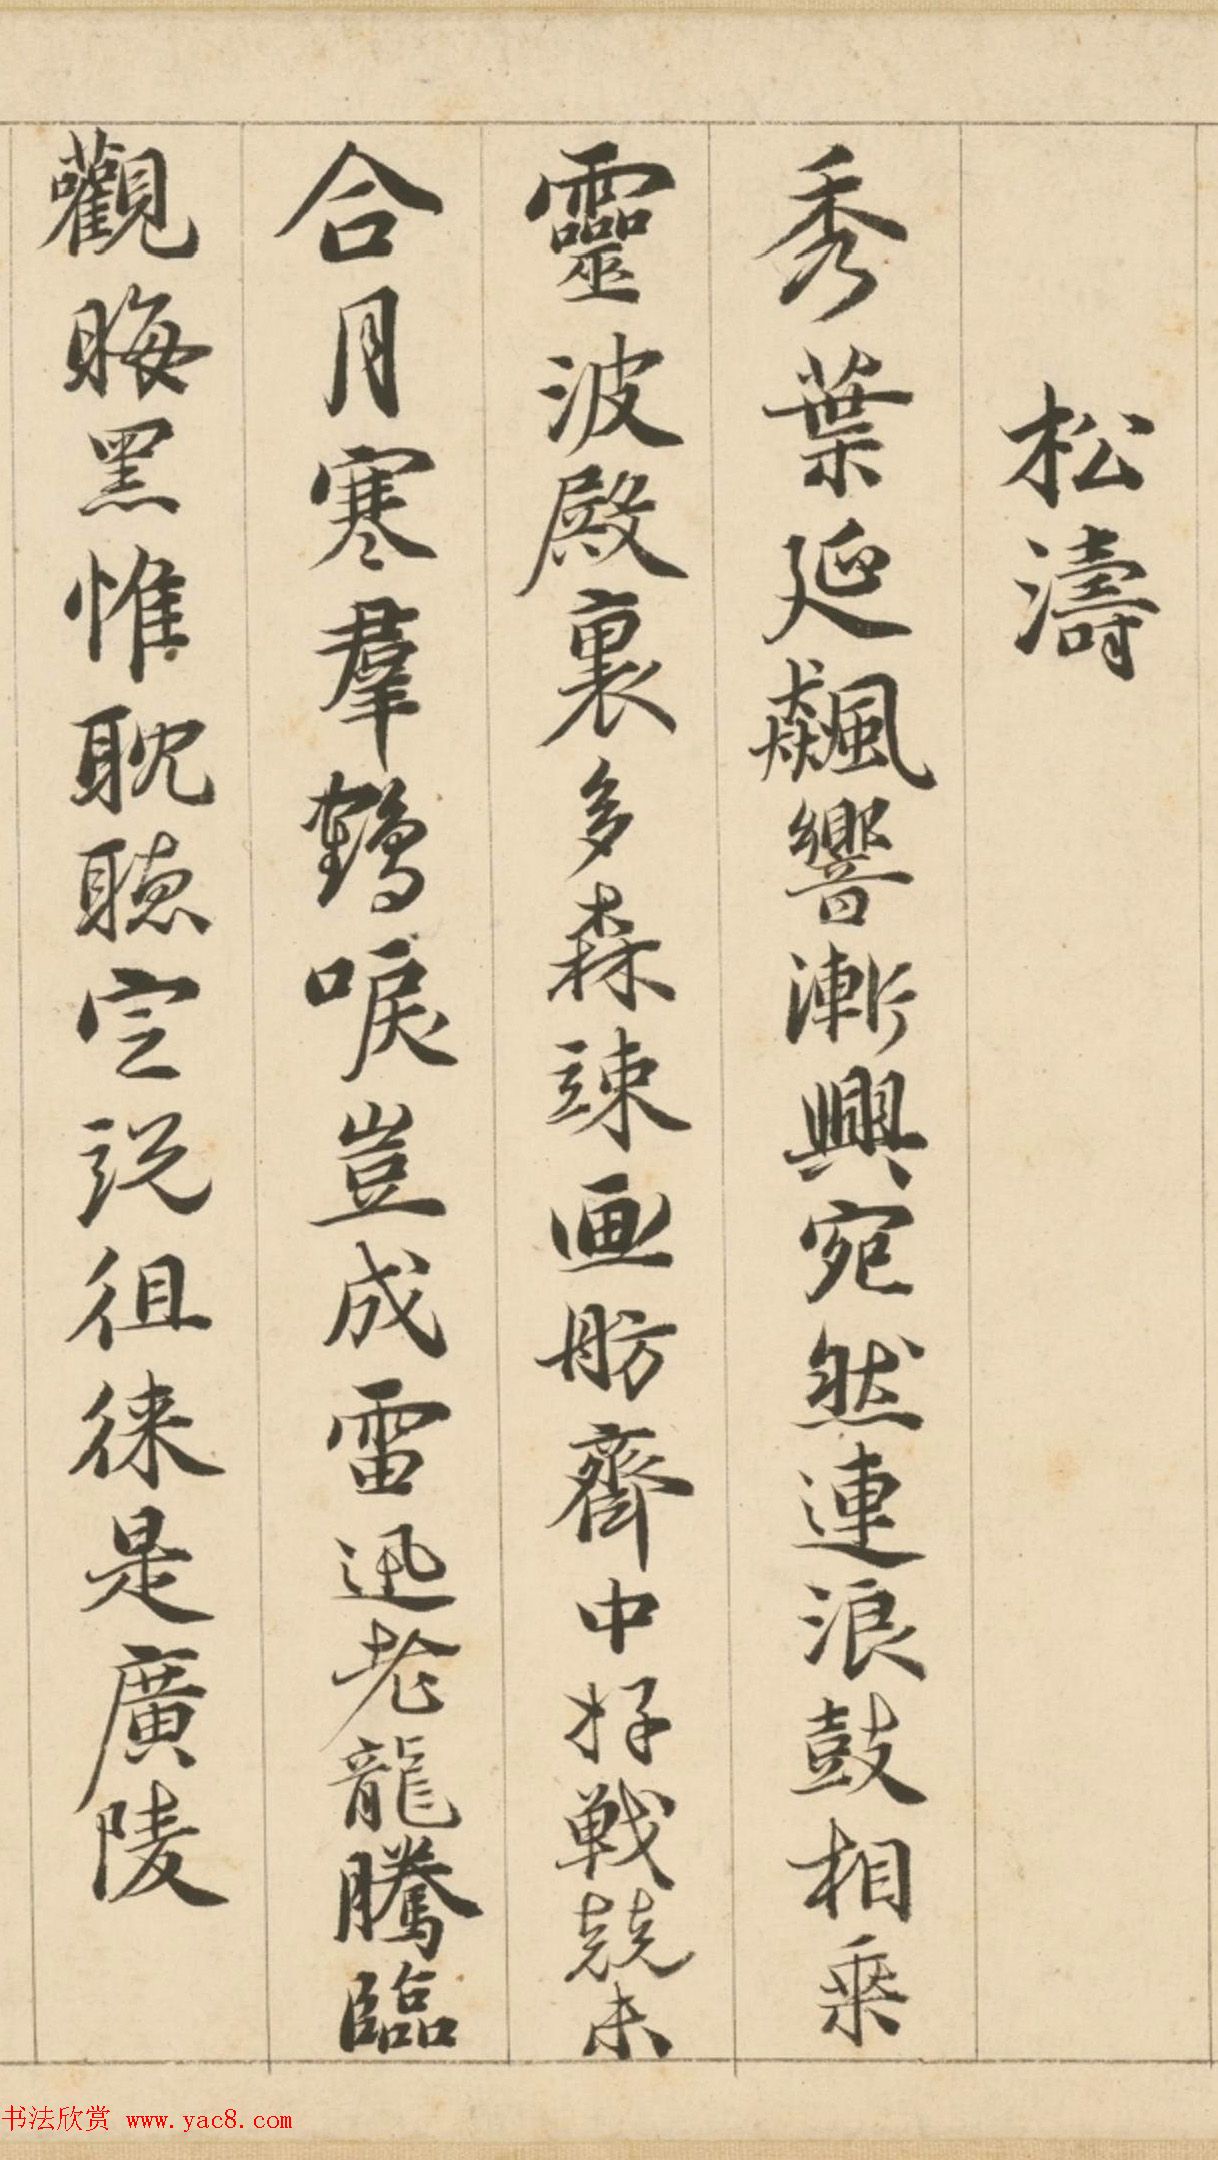 松濤
秀葉延飆響漸興宛然連浪鼓相乗
靈波殿裏多森竦画舫齋中好戦兢未
合月寒羣鶴唳豈成雷迅老龍騰臨
觀晦黑惟耽聽定説徂徠是廣陵
书法欣赏 www.yac8.com